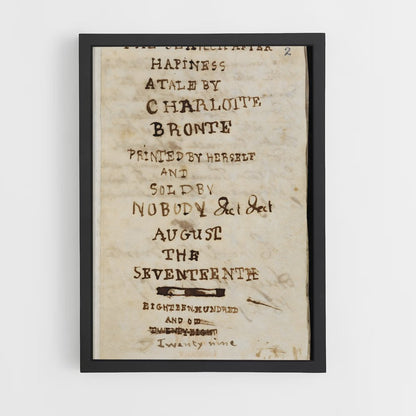 THE SEARCH AFTER
2
HAPINESS
A TALE BY
CHARLOTTE
BRONTE
PRINTED BY HERSELF
AND
SOLD BY
NOBODY &ct &ct
AUGUST
THE
SEVENTEENTH
EIGHTEEN HUNDRED
AND
TWENTY EIGHT
Twenty nine